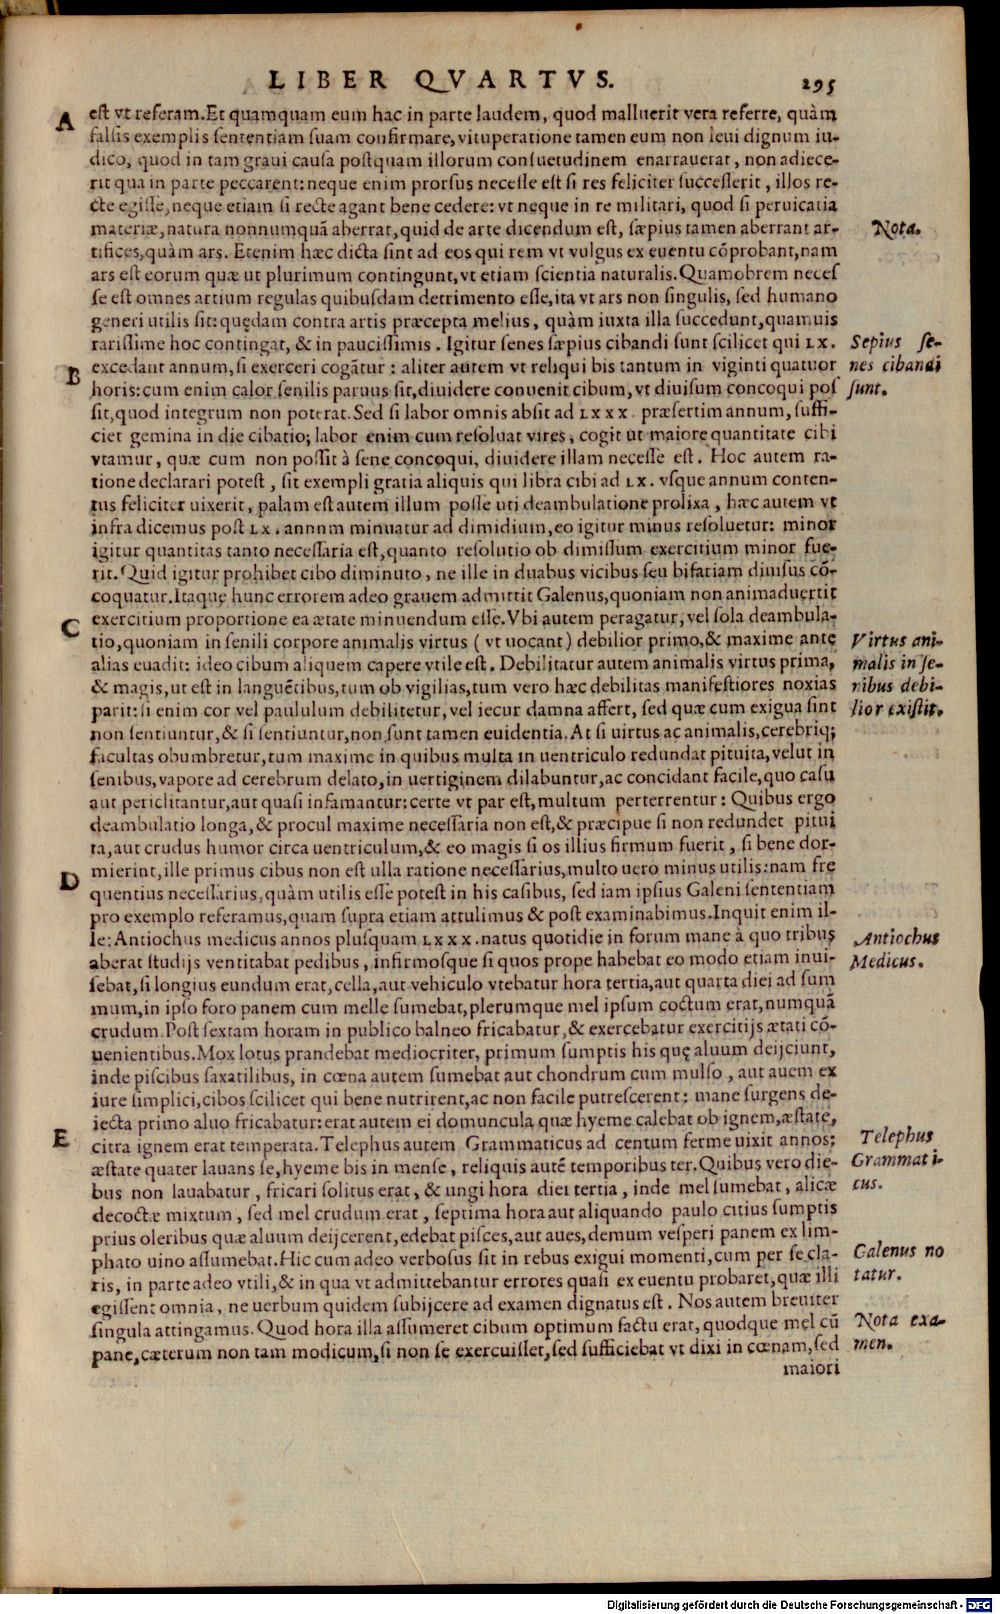 LIBER QVARTVS. 295
A est vt referam. Et quamquam eum hac in parte laudem, quod malluerit vera referre, quàm
falsis exemplis sententiam suam confirmare, vituperatione tamen eum non leui dignum iu-
dico, quod in tam graui causa postquam illorum consuetudinem enarrauerat, non adiece-
rit qua in parte peccarent: neque enim prorsus necesse est si res feliciter successerit, illos re-
cte egisse, neque etiam si recte agant bene cedere: vt neque in re militari, quod si peruicatia
materiæ, natura nonnumquã aberrat, quid de arte dicendum est, sæpius tamen aberrant ar- Nota.
tifices, quàm ars. Etenim hæc dicta sint ad eos qui rem vt vulgus ex euentu cõprobant, nam
ars est eorum quæ ut plurimum contingunt, vt etiam scientia naturalis. Quamobrem neces
se est omnes artium regulas quibusdam detrimento esse, ita vt ars non singulis, sed humano
generi utilis sit: quędam contra artis præcepta melius, quàm iuxta illa succedunt, quamuis
rarissime hoc contingat, & in paucissimis. Igitur senes sæpius cibandi sunt scilicet qui LX. Sepius se-
B excedant annum, si exerceri cogãtur: aliter autem vt reliqui bis tantum in viginti quatuor nes cibandi
horis: cum enim calor senilis paruus sit, diuidere conuenit cibum, vt diuisum concoqui pos sunt.
sit, quod integrum non poterat. Sed si labor omnis absit ad LXXX. præsertim annum, suffi-
ciet gemina in die cibatio; labor enim cum resoluat vires, cogit ut maiore quantitate cibi
vtamur, quæ cum non possit à sene concoqui, diuidere illam necesse est. Hoc autem ra-
tione declarari potest, sit exempli gratia aliquis qui libra cibi ad LX. vsque annum conten-
tus feliciter uixerit, palam est autem illum posse uti deambulatione prolixa, hæc autem vt
infra dicemus post LX. annnm minuatur ad dimidium, eo igitur minus resoluetur: minor
igitur quantitas tanto necessaria est, quanto resolutio ob dimissum exercitium minor fue-
rit. Quid igitur prohibet cibo diminuto, ne ille in duabus vicibus seu bifariam diuisus cõ-
coquatur. Itaque hunc errorem adeo grauem admittit Galenus, quoniam non animaduertit
C exercitium proportione ea ætate minuendum esse. Vbi autem peragatur, vel sola deambula-
tio, quoniam in senili corpore animalis virtus (vt uocant) debilior primo, & maxime ante Virtus ani-
alias euadit: ideo cibum aliquem capere vtile est. Debilitatur autem animalis virtus prima, malis in se-
& magis, ut est in languẽtibus, tum ob vigilias, tum vero hæc debilitas manifestiores noxias nibus debi-
parit: si enim cor vel paululum debilitetur, vel iecur damna affert, sed quæ cum exigua sint lior existit.
non sentiuntur, & si sentiuntur, non sunt tamen euidentia. At si uirtus ac animalis, cerebriq;
facultas obumbretur, tum maxime in quibus multa in uentriculo redundat pituita, velut in
senibus, vapore ad cerebrum delato, in uertiginem dilabuntur, ac concidant facile, quo casu
aut periclitantur, aut quasi infamantur: certe vt par est, multum perterrentur: Quibus ergo
deambulatio longa, & procul maxime necessaria non est, & præcipue si non redundet pitui
ta, aut crudus humor circa uentriculum, & eo magis si os illius firmum fuerit, si bene dor-
D mierint, ille primus cibus non est ulla ratione necessarius, multo uero minus utilis: nam fre
quentius necessarius, quàm utilis esse potest in his casibus, sed iam ipsius Galeni sententiam
pro exemplo referamus, quam supra etiam attulimus & post examinabimus. Inquit enim il-
le: Antiochus medicus annos plusquam LXXX. natus quotidie in forum mane à quo tribus Antiochus
aberat studijs ventitabat pedibus, infirmosque si quos prope habebat eo modo etiam inui- Medicus.
sebat, si longius eundum erat, cella, aut vehiculo vtebatur hora tertia, aut quarta diei ad sum
mum, in ipso foro panem cum melle sumebat, plerumque mel ipsum coctum erat, numquã
crudum. Post sextam horam in publico balneo fricabatur, & exercebatur exercitijs ætati cõ-
uenientibus. Mox lotus prandebat mediocriter, primum sumptis his quę aluum deijciunt,
inde piscibus saxatilibus, in cœna autem sumebat aut chondrum cum mulso, aut auem ex
iure simplici, cibos scilicet qui bene nutrirent, ac non facile putrescerent: mane surgens de-
iecta primo aluo fricabatur: erat autem ei domuncula quæ hyeme calebat ob ignem, æstate,
E citra ignem erat temperata. Telephus autem Grammaticus ad centum ferme uixit annos; Telephus
æstate quater lauans se, hyeme bis in mense, reliquis autẽ temporibus ter. Quibus vero die- Grammati-
bus non lauabatur, fricari solitus erat, & ungi hora diei tertia, inde mel sumebat, alicæ cus.
decoctæ mixtum, sed mel crudum erat, septima hora aut aliquando paulo citius sumptis
prius oleribus quæ aluum deijcerent, edebat pisces, aut aues, demum vesperi panem ex lim-
phato uino assumebat. Hic cum adeo verbosus sit in rebus exigui momenti, cum per se cla- Galenus no
ris, in parte adeo vtili, & in qua vt admittebantur errores quasi ex euentu probaret, quæ illi tatur.
egissent omnia, ne uerbum quidem subijcere ad examen dignatus est. Nos autem breuiter
singula attingamus. Quod hora illa assumeret cibum optimum factu erat, quodque mel cũ Nota exa-
pane, cæterum non tam modicum, si non se exercuisset, sed sufficiebat vt dixi in cœnam, sed men.
maiori
Digitalisierung gefördert durch die Deutsche Forschungsgemeinschaft - DFG